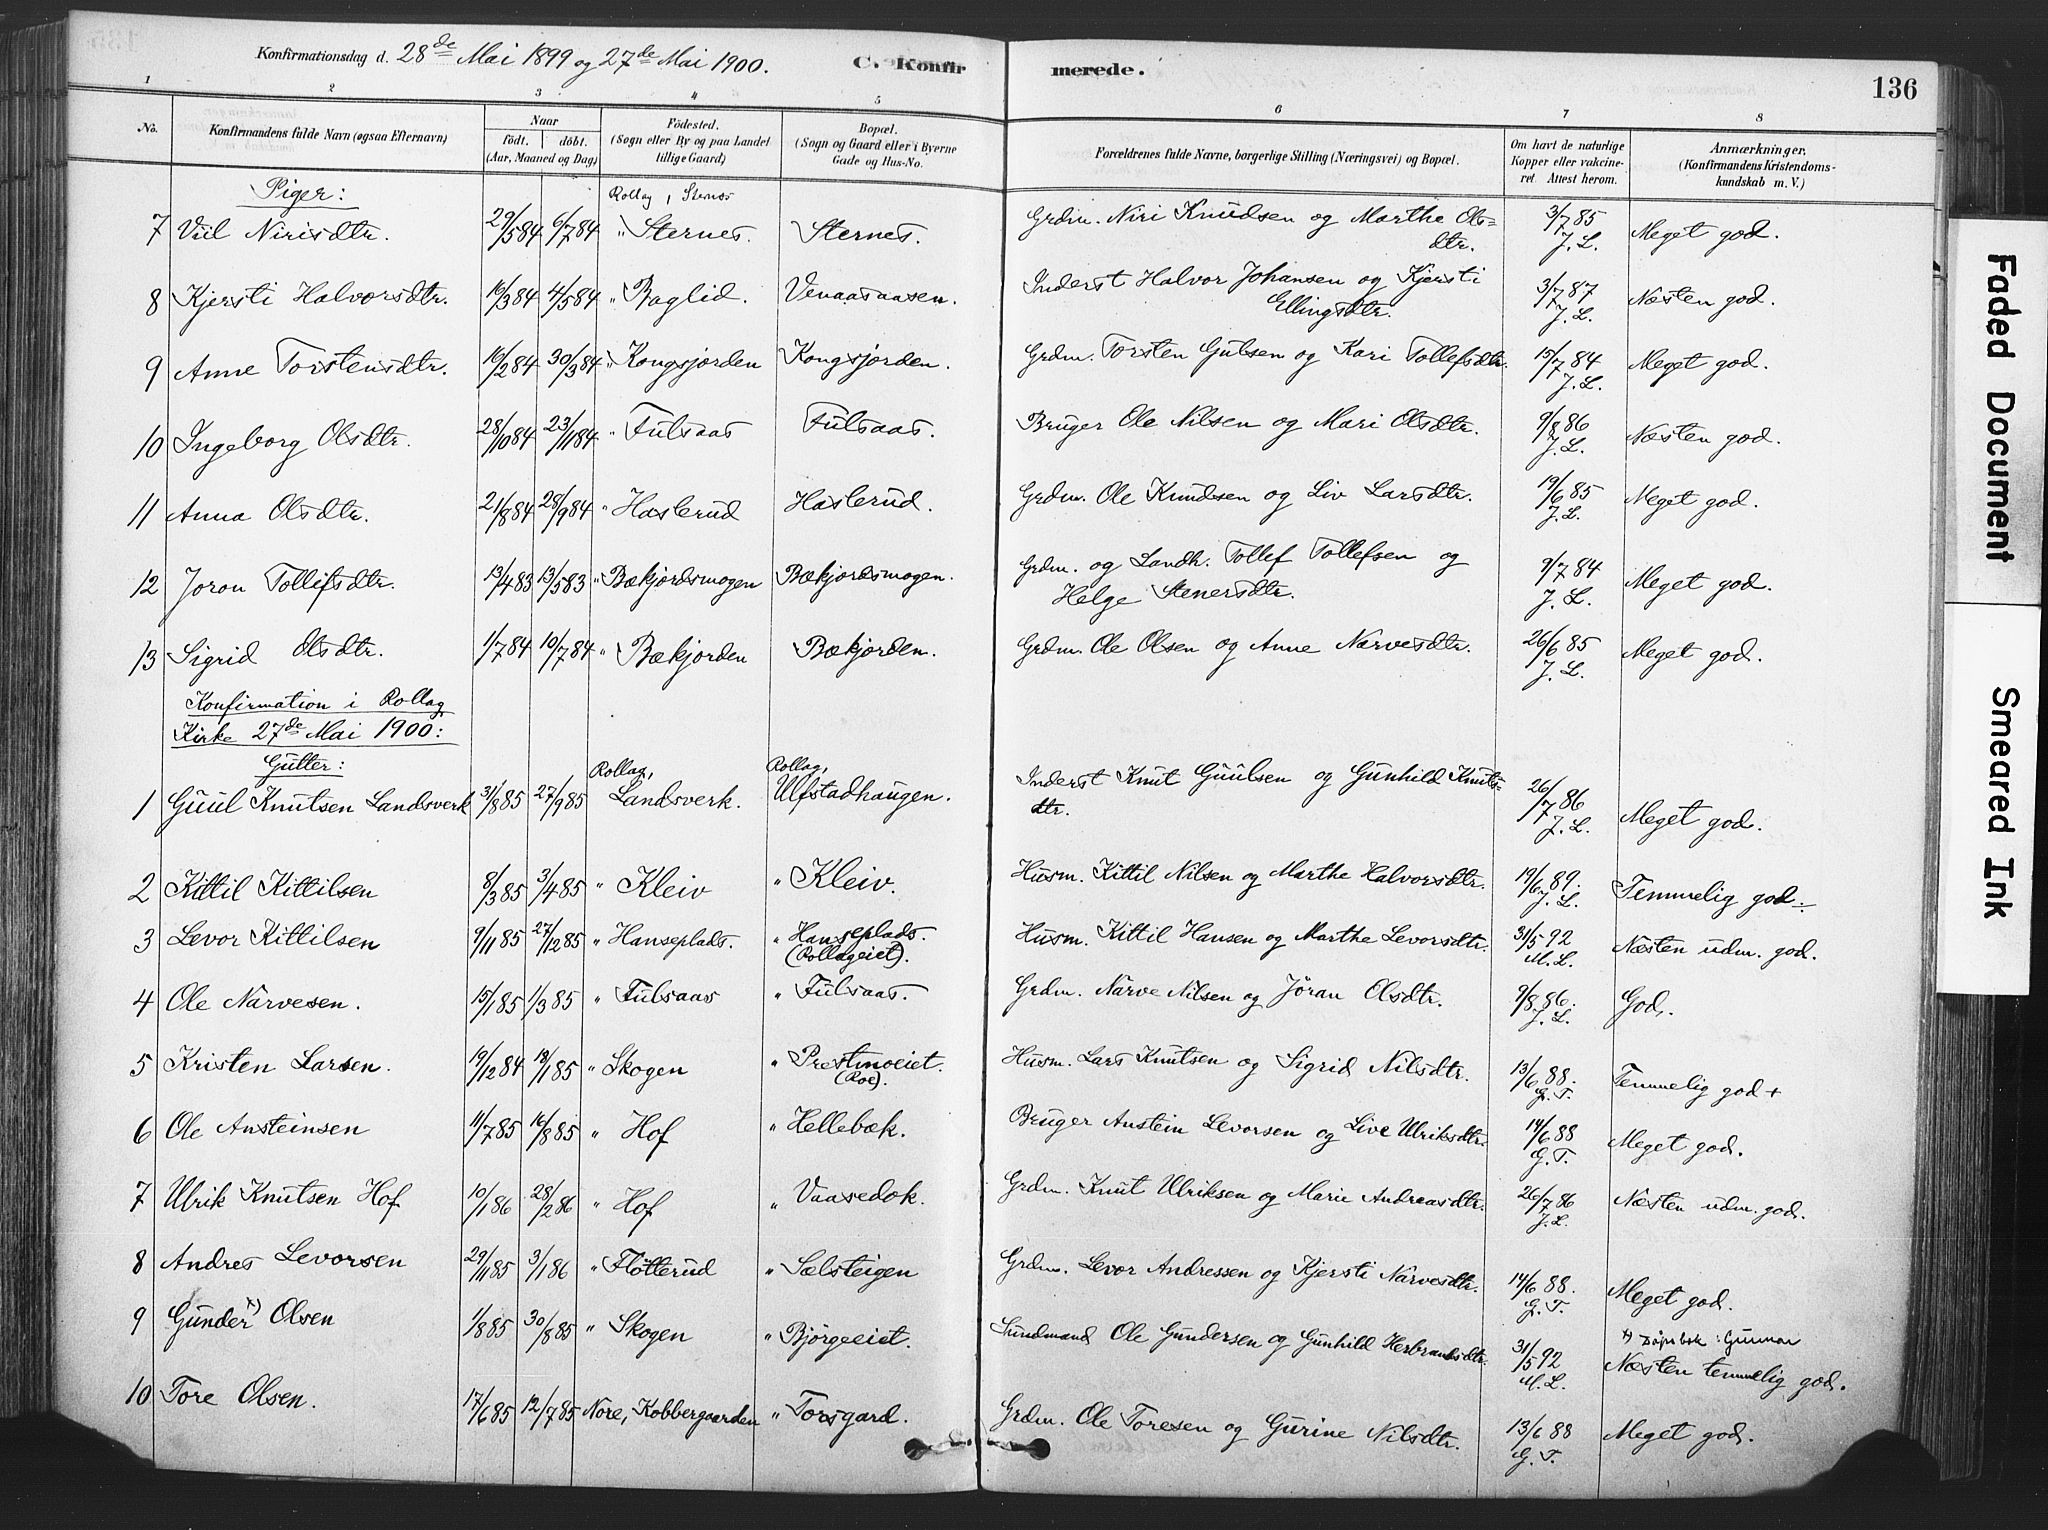 Konfirmationsdag d. 28de Mai 1899 og 27de Mai 1900. C. Konfirmerede. 136
1 2 3 4 5 6 7 8
No. Konfirmandens fulde Navn (ogsaa Efternavn) Naar födt. döbt. (Aar, Maaned og Dag) Födested. (Sogn eller By og paa Landet tillige Gaard) Bopæl. (Sogn og Gaard eller i Byerne Gade og Hus-No. Forældrenes fulde Navne, borgerlige Stilling (Næringsvei) og Bopæl. Om havt de naturlige Kopper eller vakcineret. Attest herom. Anmærkninger. (Konfirmandens Kristendomskundskab m. V.)
Piger: Rollag, Sternes
7 Viil Nirisdtr. 29/5 84 6/7 84 " Sternes. Sternes. Grdm. Niri Knudsen og Marthe Olsdtr. 3/7 85 J. L. Meget god.
8 Kjersti Halvorsdtr. 16/3 84 4/5 84 " Baglid. Venaasaasen. Inderst Halvor Johansen og Kjersti Ellingsdtr. 3/7 87 J. L. Næsten god.
9 Anne Torstensdtr. 16/2 84 30/3 84 " Kongsjorden Kongsjorden. Grdm. Torsten Gulsen og Kari Tollefsdtr. 15/7 84 J. L. Meget god.
10 Ingeborg Olsdtr. 28/10 84 23/11 84 " Fulsaas Fulsaas. Bruger Ole Nilsen og Mari Olsdtr. 9/8 86 J. L. Næsten god.
11 Anna Olsdtr. 21/8 84 28/9 84 " Haslerud Haslerud. Grdm. Ole Knudsen og Liv Larsdtr. 19/6 85 J. L. Meget god.
12 Joron Tollefsdtr. 13/4 83 13/5 83 " Bækjordsmogen Bækjordsmogen. Grdm. og Landh. Tollef Tollefsen og Helge Stenersdtr. 9/7 84 J. L. Meget god.
13 Sigrid Olsdtr. 1/7 84 10/7 84 " Bækjorden Bækjorden. Grdm. Ole Olsen og Anne Narvesdtr. 26/6 85 J. L. Meget god.
Konfirmation i Rollag
Kirke 27de Mai 1900:
Gutter:
1 Guul Knutsen Landsverk 31/8 85 27/9 85 Rollag, Landsverk. Rollag, Ulfstadhaugen. Inderst Knut Guulsen og Gunhild Knutsdtr. 26/7 86 J. L. Meget god.
2 Kittil Kittilsen 8/3 85 3/4 85 " Kleiv " Kleiv. Husm. Kittil Nilsen og Marthe Halvorsdtr. 19/6 89. J. L. Temmelig god ÷
3 Levor Kittilsen 9/11 85 27/12 85 " Hanseplads. " Hanseplads. (Rollageiet). Husm. Kittil Hansen og Marthe Levorsdtr. 31/5 92 M. L. Næsten udm. god.
4 Ole Narvesen. 15/1 85 1/3 85 " Fulsaas " Fulsaas. Grdm. Narve Nilsen og Jöran Olsdtr. 9/8 86. J. L. God.
5 Kristen Larsen. 19/12 84 18/1 85 " Skogen " Prestmoeiet. (Roe). Husm. Lars Knutsen og Sigrid Nilsdtr. 13/6 88. G. T. Temmelig god +
6 Ole Ansteinsen 11/7 85 16/8 85 " Hof " Hellebæk. Bruger Anstein Levorsen og Live Ulriksdtr. 14/6 88 G. T. Meget god.
7 Ulrik Knutsen Hof 10/1 86 28/2 86 " Hof " Vaasedok. Grdm. Knut Ulriksen og Marie Andreasdtr. 26/7 86 J. L. Næsten udm. god.
8 Andres Levorsen 29/11 85 3/1 86 " Flötterud " Sælsteigen Grdm. Levor Andressen og Kjersti Narvesdtr. 14/6 88. G. T. Meget god.
9 Gunder x) Olsen 1/8 85 30/8 85 " Skogen " Björgeeiet. Sundmand Ole Gundersen og Gunhild Herbrandsdtr. 31/5 92 M. L. x) Döpebok: Gunnar Næsten temmelig god.
10 Tore Olsen. 17/6 85 12/7 85 Nore, Kobbergaarden " Torsgard. Grdm. Ole Toresen og Gurine Nilsdtr. 13/6 88 G. T. Meget god.
Faded Document
Smeared Ink